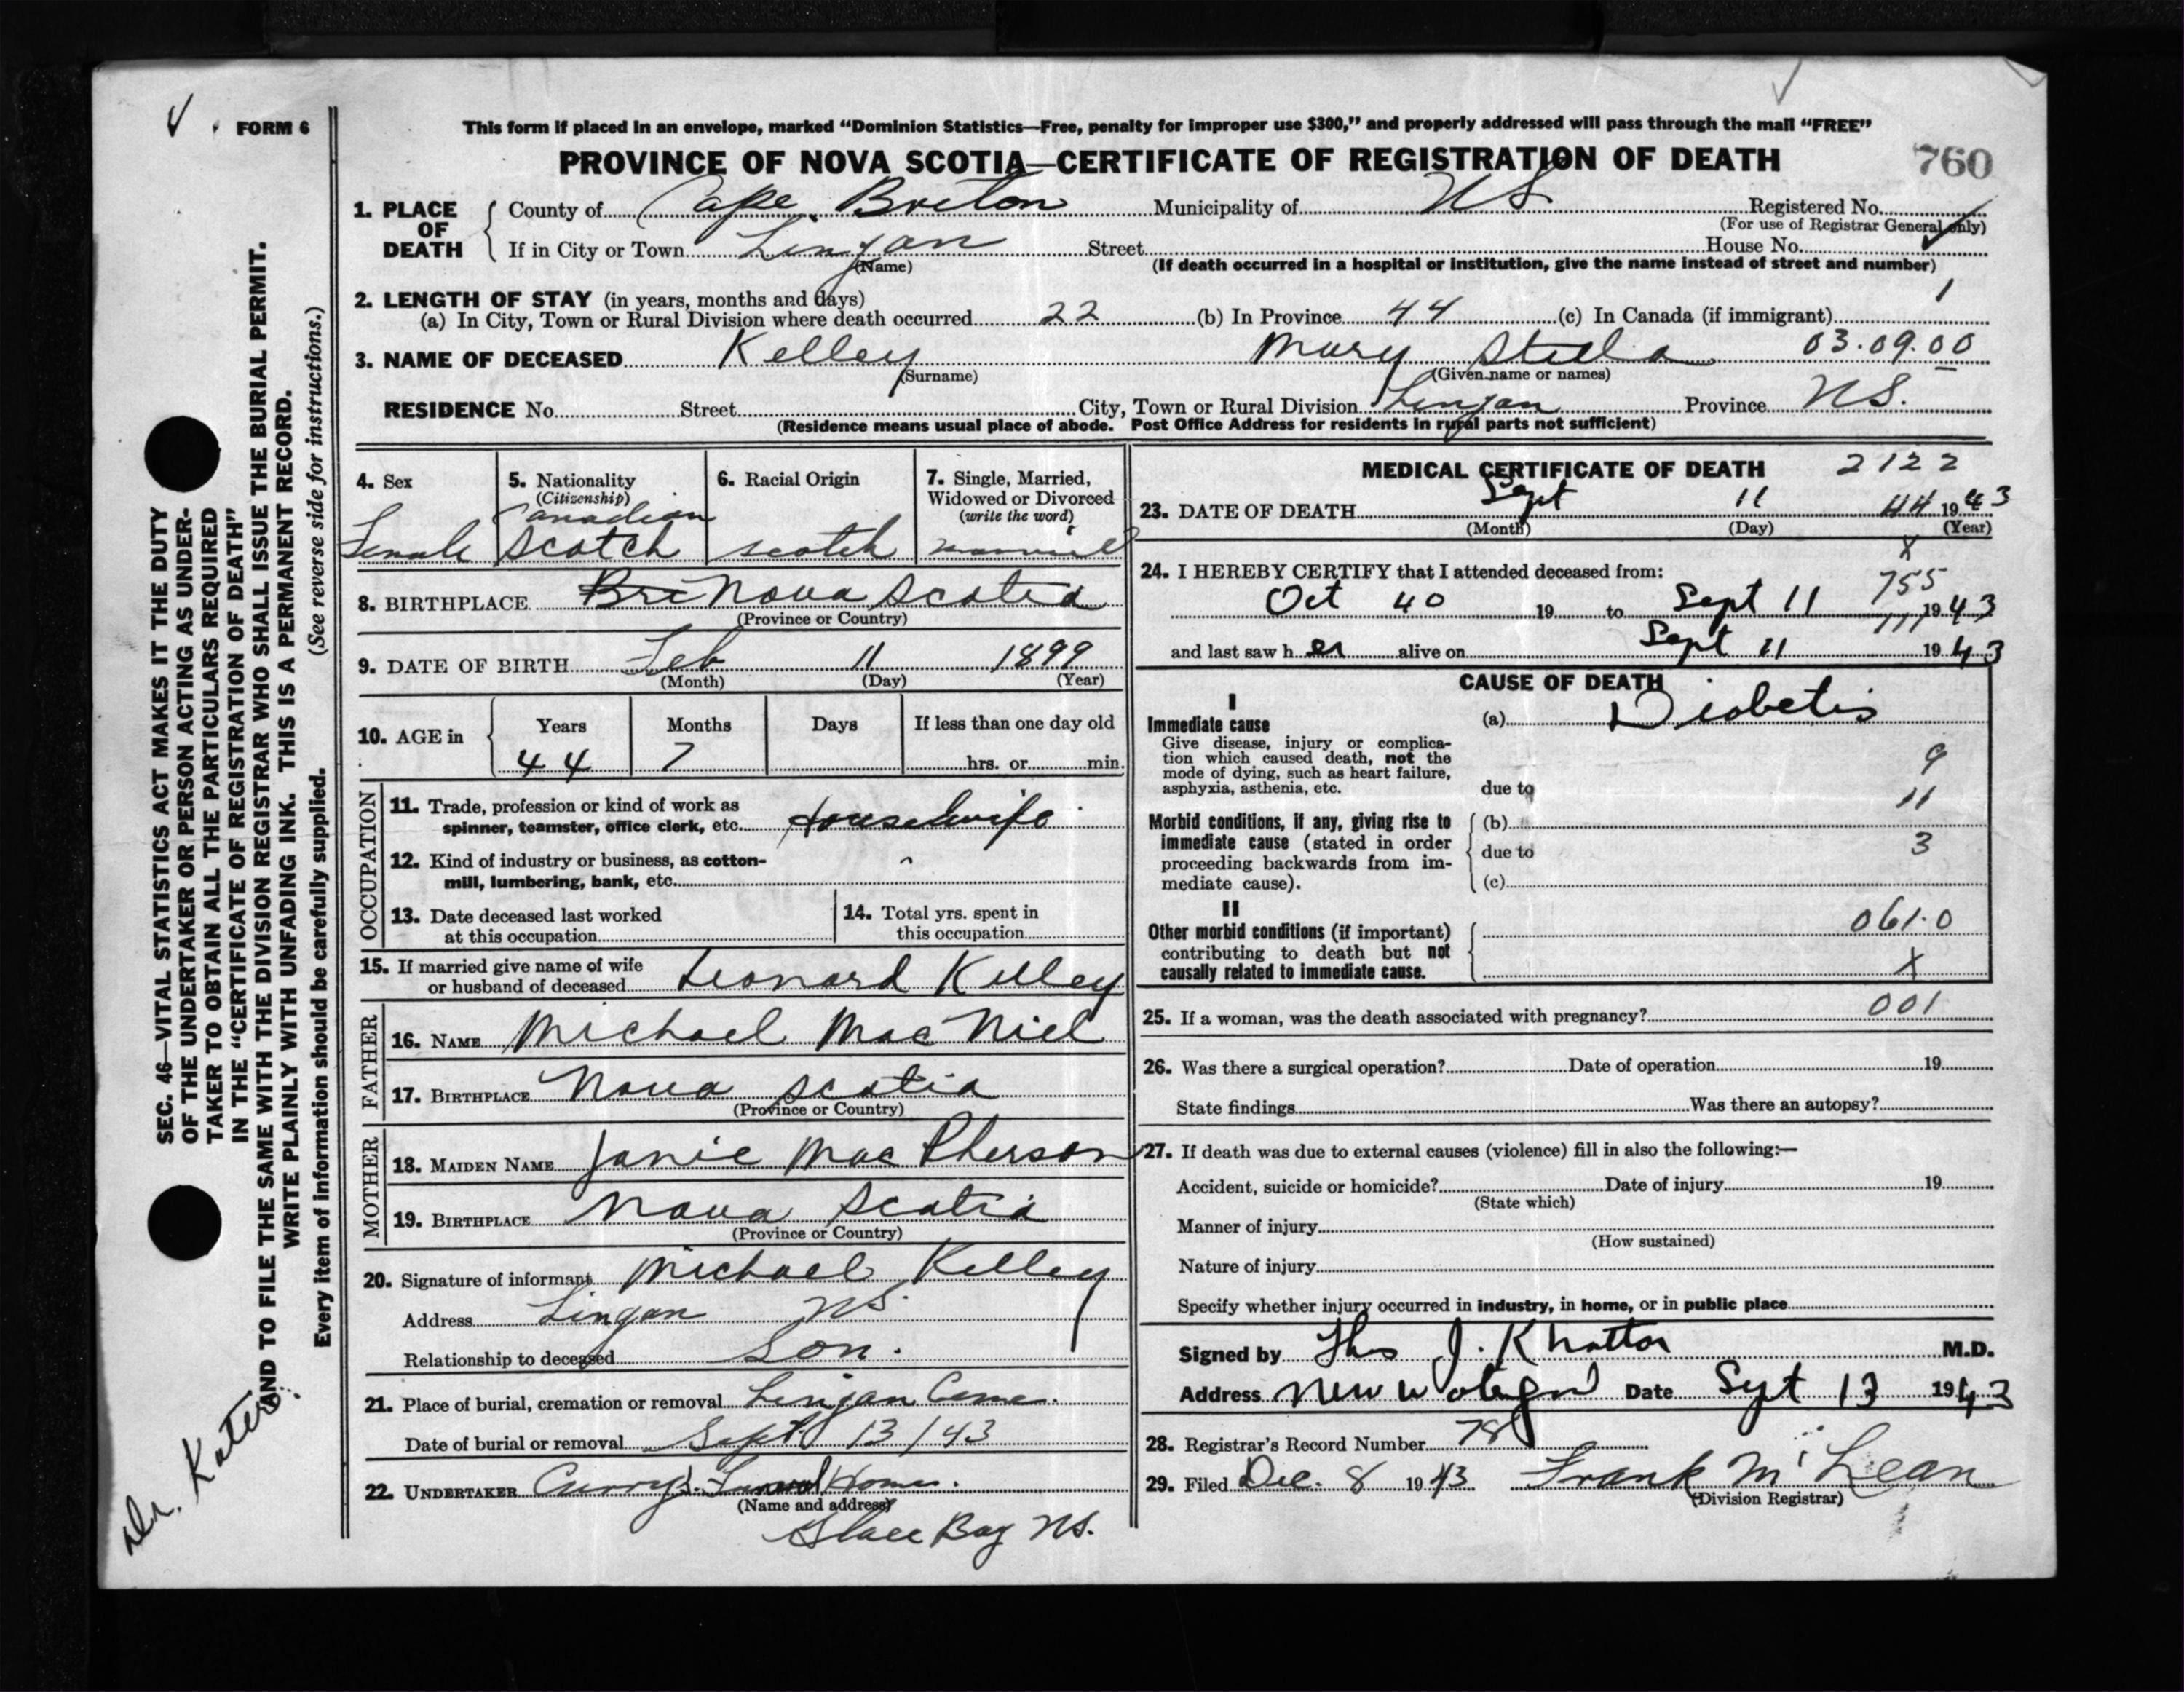 FORM 6
This form if placed in an envelope, marked “Dominion Statistics—Free, penalty for improper use $300,” and properly addressed will pass through the mail “FREE”
PROVINCE OF NOVA SCOTIA—CERTIFICATE OF REGISTRATION OF DEATH
760
1. PLACE OF DEATH County of Cape Breton Municipality of NS Registered No.
(For use of Registrar General only)
If in City or Town Lingan Street House No.
(Name) (If death occurred in a hospital or institution, give the name instead of street and number)
2. LENGTH OF STAY (in years, months and days) 1
(a) In City, Town or Rural Division where death occurred 22 (b) In Province 44 (c) In Canada (if immigrant)
3. NAME OF DECEASED Kelley Mary 03.09.00
(Surname) (Given name or names)
RESIDENCE No. Street City, Town or Rural Division Lingan Province NS.
(Residence means usual place of abode. Post Office Address for residents in rural parts not sufficient)
4. Sex 5. Nationality (Citizenship) 6. Racial Origin 7. Single, Married, Widowed or Divorced (write the word)
Canadian
Female Scotch scotch married
8. BIRTHPLACE Nova Scotia
(Province or Country)
9. DATE OF BIRTH Feb 11 1899
(Month) (Day) (Year)
10. AGE in Years Months Days If less than one day old
44 7 hrs. or min.
OCCUPATION
11. Trade, profession or kind of work as spinner, teamster, office clerk, etc. Housewife
12. Kind of industry or business, as cotton-mill, lumbering, bank, etc.
13. Date deceased last worked at this occupation
14. Total yrs. spent in this occupation
15. If married give name of wife or husband of deceased Leonard Kelley
FATHER
16. NAME Michael Mac Niel
17. BIRTHPLACE Nova Scotia
(Province or Country)
MOTHER
18. MAIDEN NAME Janie Mac Pherson
19. BIRTHPLACE Nova Scotia
(Province or Country)
20. Signature of informant Michael Kelley
Address Lingan NS.
Relationship to deceased Son.
21. Place of burial, cremation or removal Lingan Ceme.
Date of burial or removal Sept. 13/43
22. UNDERTAKER Curry's Funeral Home.
(Name and address)
Glace Bay NS.
MEDICAL CERTIFICATE OF DEATH 2122
23. DATE OF DEATH Sept 11 44 1943
(Month) (Day) (Year)
X
24. I HEREBY CERTIFY that I attended deceased from:
755
Oct 40 19 to Sept 11 1943
111
and last saw her alive on Sept 11 1943
CAUSE OF DEATH
I
Immediate cause (a) Diabetis
Give disease, injury or complication which caused death, not the mode of dying, such as heart failure, asphyxia, asthenia, etc.
9
due to
11
Morbid conditions, if any, giving rise to immediate cause (stated in order proceeding backwards from immediate cause).
(b)
due to 3
(c)
II
Other morbid conditions (if important) contributing to death but not causally related to immediate cause.
061.0
X
25. If a woman, was the death associated with pregnancy? 001
26. Was there a surgical operation? Date of operation 19
State findings Was there an autopsy?
27. If death was due to external causes (violence) fill in also the following:—
Accident, suicide or homicide? Date of injury 19
(State which)
Manner of injury
(How sustained)
Nature of injury
Specify whether injury occurred in industry, in home, or in public place
Signed by Thos J. Khattar M.D.
Address New Waterford Date Sept 13 1943
28. Registrar's Record Number 78
29. Filed Dec. 8 1943 Frank McLean
(Division Registrar)
SEC. 46—VITAL STATISTICS ACT MAKES IT THE DUTY
OF THE UNDERTAKER OR PERSON ACTING AS UNDER-
TAKER TO OBTAIN ALL THE PARTICULARS REQUIRED
IN THE “CERTIFICATE OF REGISTRATION OF DEATH”
AND TO FILE THE SAME WITH THE DIVISION REGISTRAR WHO SHALL ISSUE THE BURIAL PERMIT.
WRITE PLAINLY WITH UNFADING INK. THIS IS A PERMANENT RECORD.
Every item of information should be carefully supplied. (See reverse side for instructions.)
Dr.